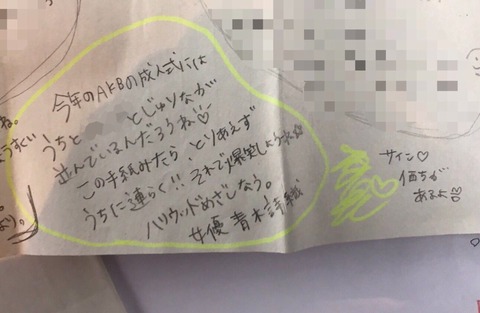 今年のAKBの成人式には
うちと とじゅりなが
並んでいるんだろうね♡
この手紙みたら、とりあえず
うちに連らく!! それで爆笑しようね☆
ハリウッドめざしなう。
女優 青木詩織
サイン♡
価ちが
あるよ
ね。
ようすぐい